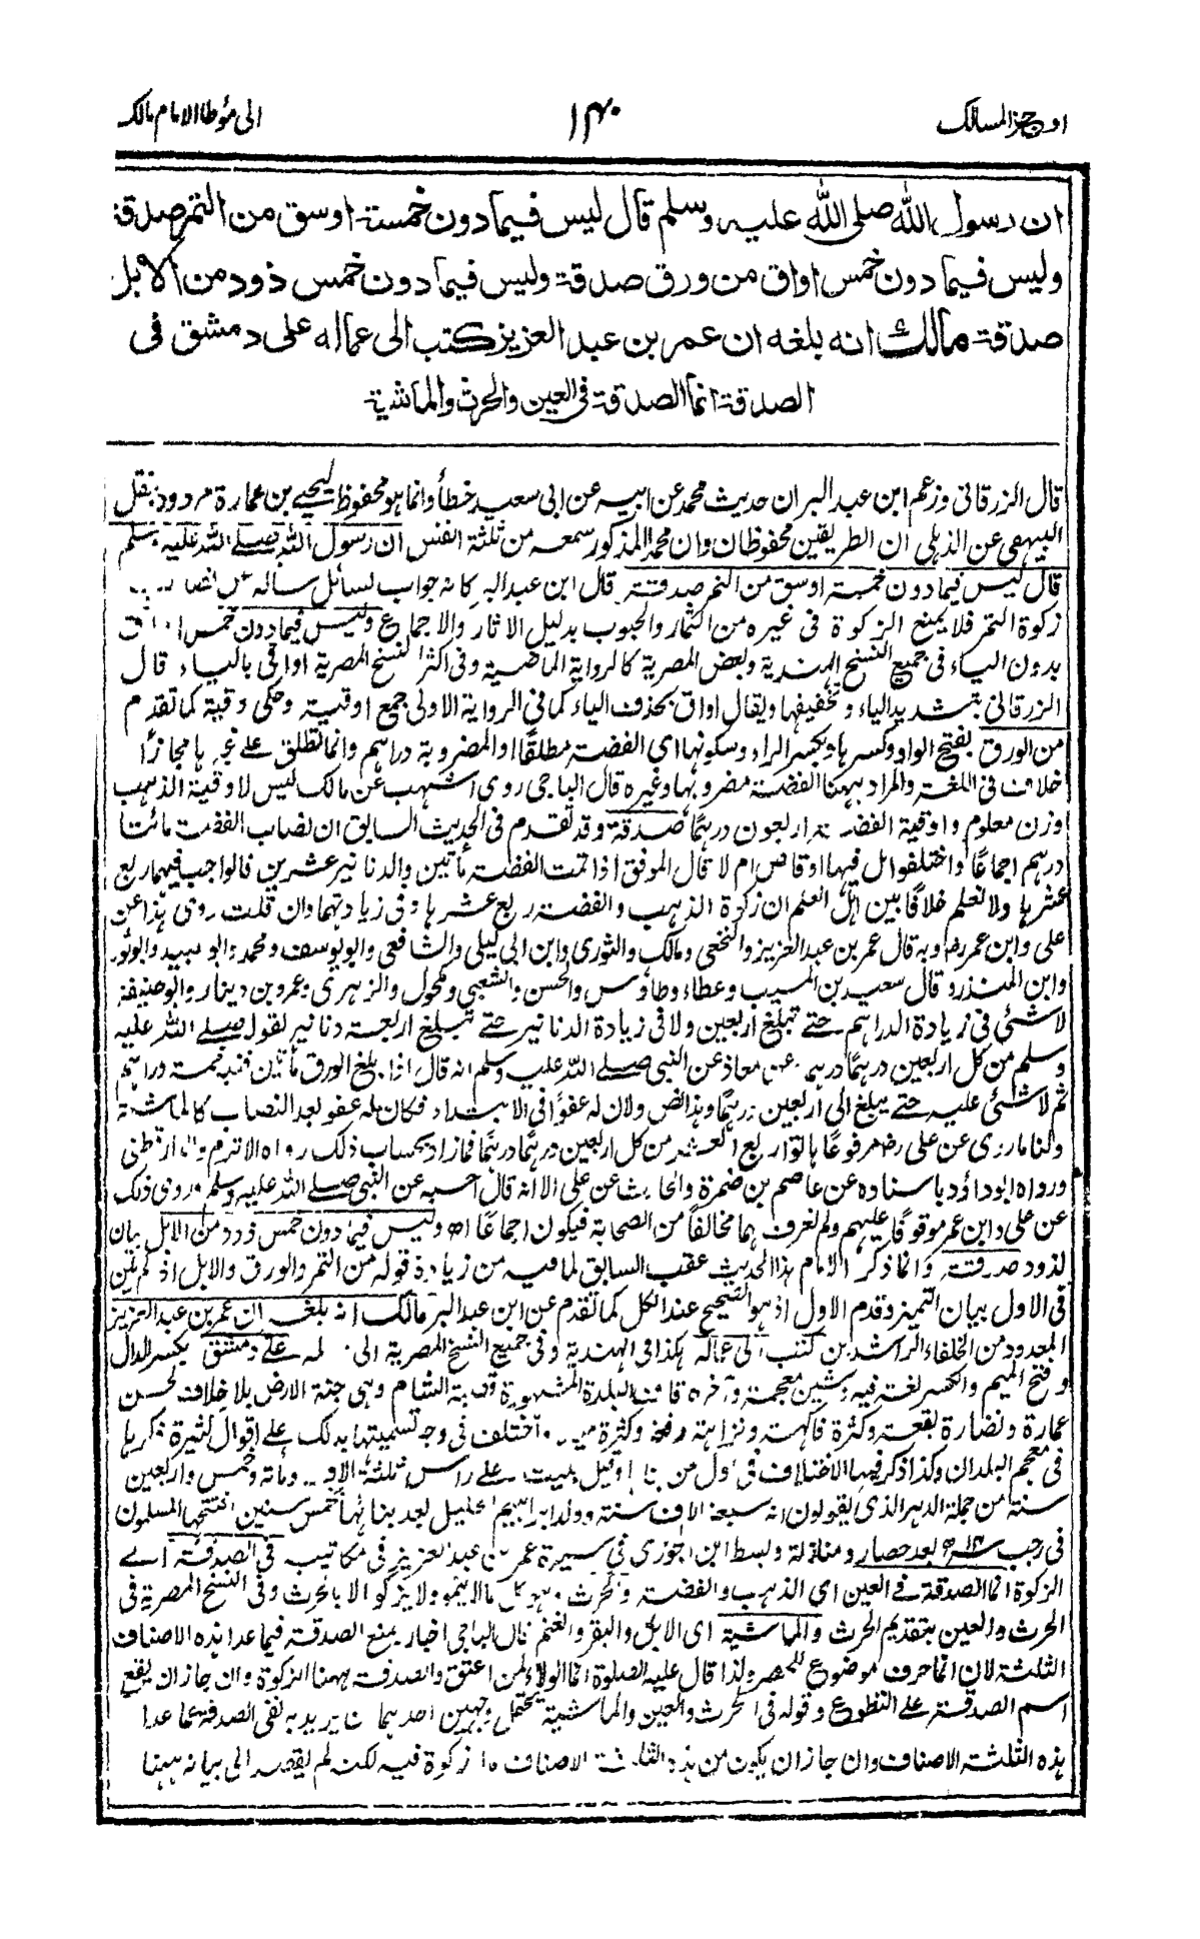 اوجز المسالك
١٤٠
الى مؤطا الامام مالك
ان رسول الله صلى الله عليه وسلم قال ليس فيما دون خمسة اوسق من التمر صدقة
وليس فيما دون خمس اواق من ورق صدقة وليس فيما دون خمس ذود من الابل
صدقة مالك انه بلغه ان عمر بن عبد العزيز كتب الى عماله على دمشق فى
الصدقة انما الصدقة فى العين والحرث والماشية
قال الزرقانى وزعم ابن عبد البر ان حديث محمد عن ابيه عن ابى سعيد خطأ وانما هو محفوظ ليحيى بن عمارة مردود بنقل
البيهقى عن الذهلى ان الطريقين محفوظان وان محمدا المذكور سمعه من ثلثة انفس ان رسول الله صلى الله عليه وسلم
قال ليس فيما دون خمسة اوسق من التمر صدقة قال ابن عبد البر كانه جواب لسائل ساله عن
زكوة التمر فلا يمنع الزكوة فى غيره من الثمار والحبوب بدليل الاثار والاجماع وليس فيما دون خمس اواق
بدون الياء فى جميع النسخ الهندية وبعض المصرية كالرواية الماضية وفى اكثر النسخ المصرية اواقى بالياء قال
الزرقانى بتشديد الياء وتخفيفها ويقال اواق بحذف الياء كما فى الرواية الاولى جمع اوقية وحكى وقية كما تقدم
من الورق بفتح الواو وكسرها وبكسر الراء وسكونها اى الفضة مطلقا او المضروبة دراهم وانما تطلق على غيرها مجازا
خلاف فى اللغة والمراد ههنا الفضة مضروبها وغيره قال الباجى روى اشهب عن مالك ليس لاوقية الذهب
وزن معلوم واوقية الفضة اربعون درهما صدقة وقد تقدم فى الحديث السابق ان نصاب الفضة مائتا
درهم اجماعا واختلفوا هل فيها اوقاص ام لا قال الموفق اذا تمت الفضة مأتين والدنانير عشرين فالواجب فيهما ربع
عشرها ولا نعلم خلافا بين اهل العلم ان زكوة الذهب والفضة ربع عشرها وفى زيادتهما وان قلت روى هذا عن
على وابن عمر رض وبه قال عمر بن عبد العزيز والنخعى ومالك والثورى وابن ابى ليلى والشافعى وابو يوسف ومحمد وابو عبيد وابو ثور
وابن المنذر وقال سعيد بن المسيب وعطاء وطاوس والحسن والشعبى ومكحول والزهرى وعمرو بن دينار وابو حنيفة
لا شئ فى زيادة الدراهم حتى تبلغ اربعين ولا فى زيادة الدنانير حتى تبلغ اربعة دنانير لقوله صلى الله عليه
وسلم من كل اربعين درهما درهم وعن معاذ عن النبى صلى الله عليه وسلم انه قال اذا بلغ الورق مأتين ففيه خمسة دراهم
ثم لا شئ عليه حتى يبلغ الى اربعين درهما وهذا نص ولان له عفوا فى الابتداء فكان له عفو بعد النصاب كالماشية
ولنا ما روى عن على رض مرفوعا هاتوا ربع العشر من كل اربعين درهما درهما فما زاد بحساب ذلك رواه الاثرم والدارقطنى
ورواه ابو داؤد باسناده عن عاصم بن ضمرة والحارث عن على الا انه قال احسبه عن النبى صلى الله عليه وسلم وروى ذلك
عن على وابن عمر موقوفا عليهم ولم نعرف لهما مخالفا من الصحابة فيكون اجماعا اھ وليس فيما دون خمس ذود من الابل بيان
لذود صدقة وانما ذكر الامام هذا الحديث عقب السابق لما فيه من زيادة قوله من التمر والورق والابل اذ لم يبين
فى الاول بيان التميز وقدم الاول اذ هو الصحيح عند الكل كما تقدم عن ابن عبد البر مالك انه بلغه ان عمر بن عبد العزيز
المعدود من الخلفاء الراشدين كتب الى عماله هكذا فى الهندية وفى جميع النسخ المصرية الى عامله على دمشق بكسر الدال
وفتح الميم والكسر لغة فيه وشين معجمة وآخره قاف البلدة المشهورة قصبة الشام وهى جنة الارض بلا خلاف لحسن
عمارة ونضارة بقعة وكثرة فاكهة ونزاهة رقعة وكثرة مياه واختلف فى وجه تسميتها بذلك على اقوال كثيرة ذكرها
فى معجم البلدان وكذا ذكر فيها الاختلاف فى اول من بناها وقيل بنيت على راس ثلثة الاف ومأة وخمس واربعين
سنة من جملة الدهر الذى يقولون انه سبعة الاف سنة وولد ابراهيم الخليل بعد بنائها بخمس سنين افتتحها المسلمون
فى رجب سنة ١٤ھ بعد حصار ومنازلة وبسط ابن الجوزى فى سيرة عمر بن عبد العزيز فى مكاتيبه فى الصدقة اى
الزكوة انما الصدقة فى العين اى الذهب والفضة والحرث وهو كل ما لا ينمو ولا يزكو الا بالحرث وفى النسخ المصرية فى
الحرث والعين بتقديم الحرث والماشية اى الابل والبقر والغنم قال الباجى اخبار بمنع الصدقة فيما عدا هذه الاصناف
الثلثة لان انما حرف موضوع للحصر ولذا قال عليه الصلوة انما الولاء لمن اعتق والصدقة ههنا الزكوة وان جاز ان يقع
اسم الصدقة على التطوع وقوله فى الحرث والعين والماشية يحتمل وجهين احدهما ان يريد به نفى الصدقة عما عدا
هذه الثلثة الاصناف وان جاز ان يكون من هذه الثلثة الاصناف ما لا زكوة فيه لكنه لم يقصد الى بيانه ههنا